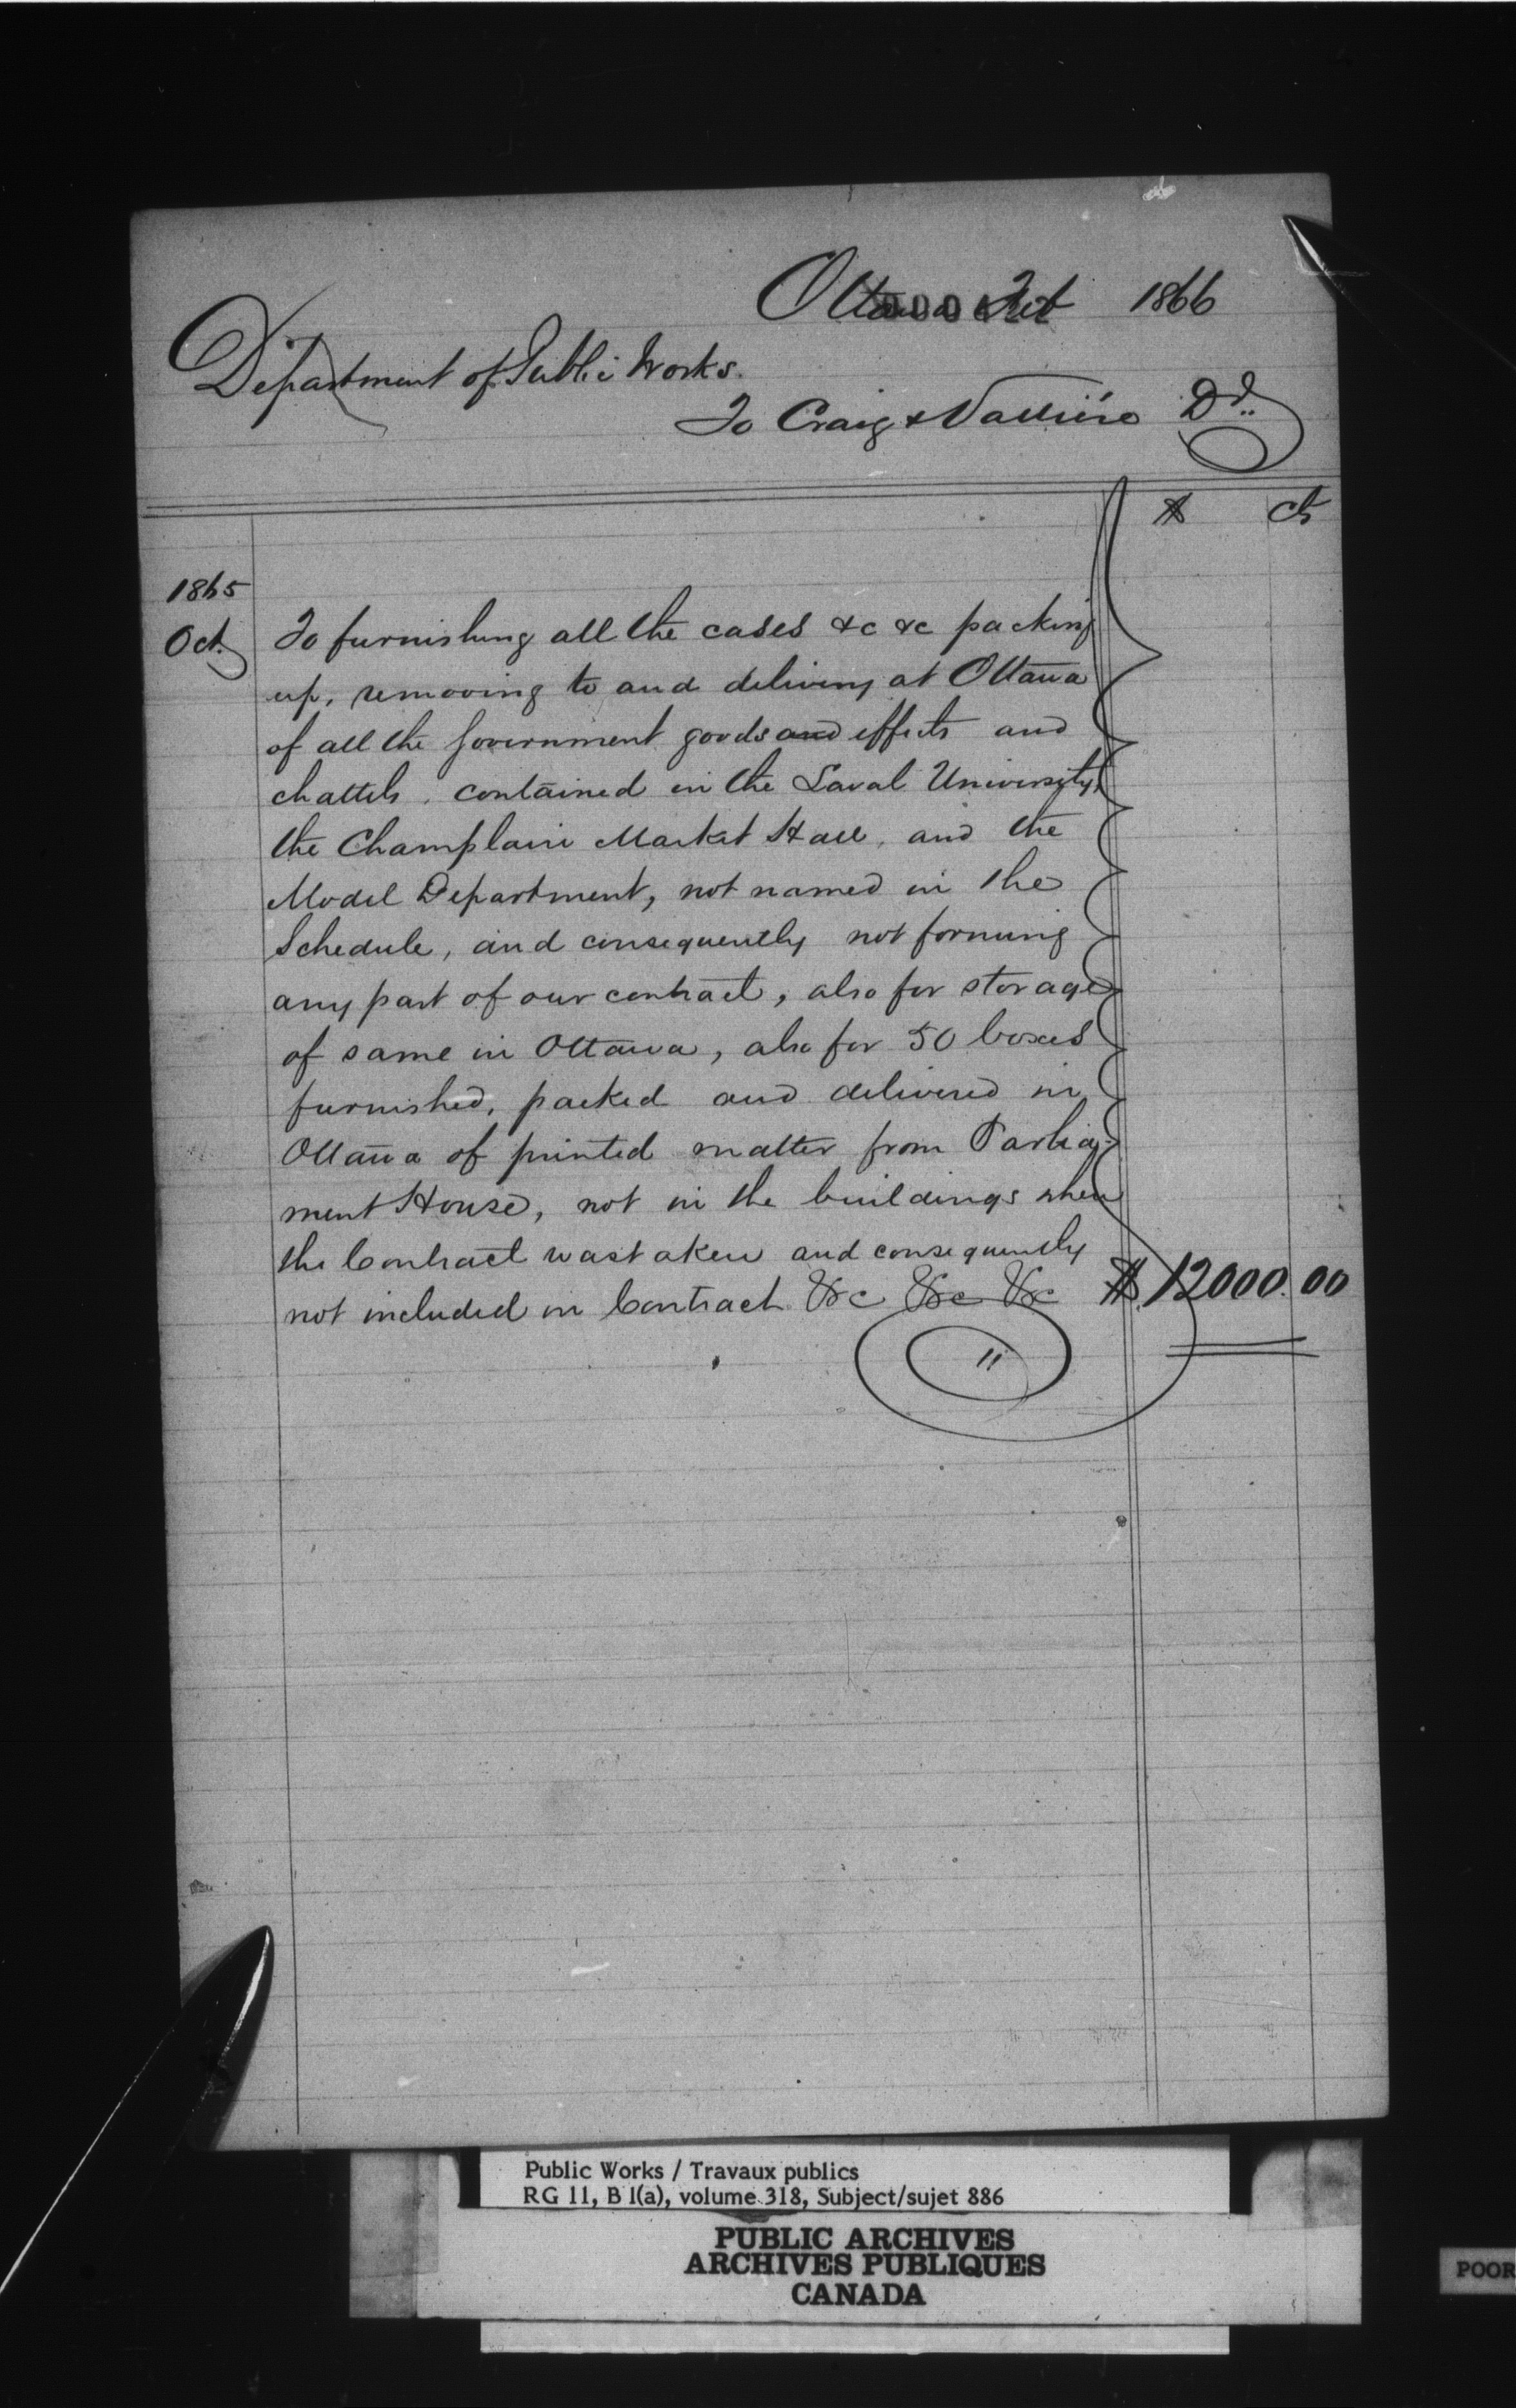 Ottawa Feb 1866
Department of Public Works.
To Craig & Vallière Dr.
$ cts
1865
Oct. To furnishing all the cases &c &c packing
up, removing to and delivery at Ottawa
of all the Government goods and effects and
chattels, contained in the Laval University,
the Champlain Market Hall, and the
Model Department, not named in the
Schedule, and consequently not forming
any part of our contract, also for storage
of same in Ottawa, also for 50 boxes
furnished, packed and delivered in
Ottawa of printed matter from Parlia-
ment House, not in the buildings when
the Contract was taken and consequently
not included in Contract &c &c &c $12000.00
"
Public Works / Travaux publics
RG 11, B 1(a), volume 318, Subject/sujet 886
PUBLIC ARCHIVES
ARCHIVES PUBLIQUES
CANADA
POOR